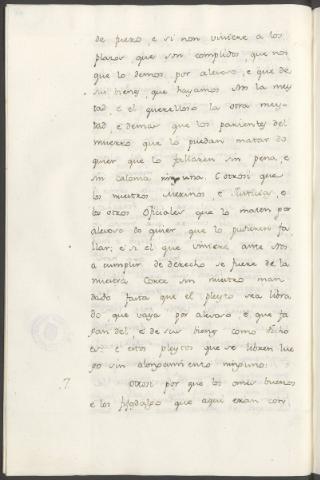 de fuero, e si non viniere a los
plazos que son complidos, que nos
que lo demos por alevoso, e que de
sus bienes, que hayamos Nos la mey
tad, e el querelloso la otra mey-
tad e demas que los parientes del
muerto que lo puedan matar do
quier que lo fallaren sin pena, e
sin calonia ninguna. E otrosi que
los nuestros Merinos, e Justicias, e
los otros Oficiales que lo maten por
alevoso do quier que lo pudieren fa
llar; e si el que viniere ante Nos
a cumplir de derecho se fuere de la
nuestra Corte sin nuestro man
dado fasta que el pleyto sea libra
do que vaya por alevoso, e que fa
gan del e de sus bienes como dicho
es: e estos pleytos que se libren lue
go sin alongamiento ninguno.
7. Otrosi por que los omes buenos
e los fijosdalgo que aqui eran con